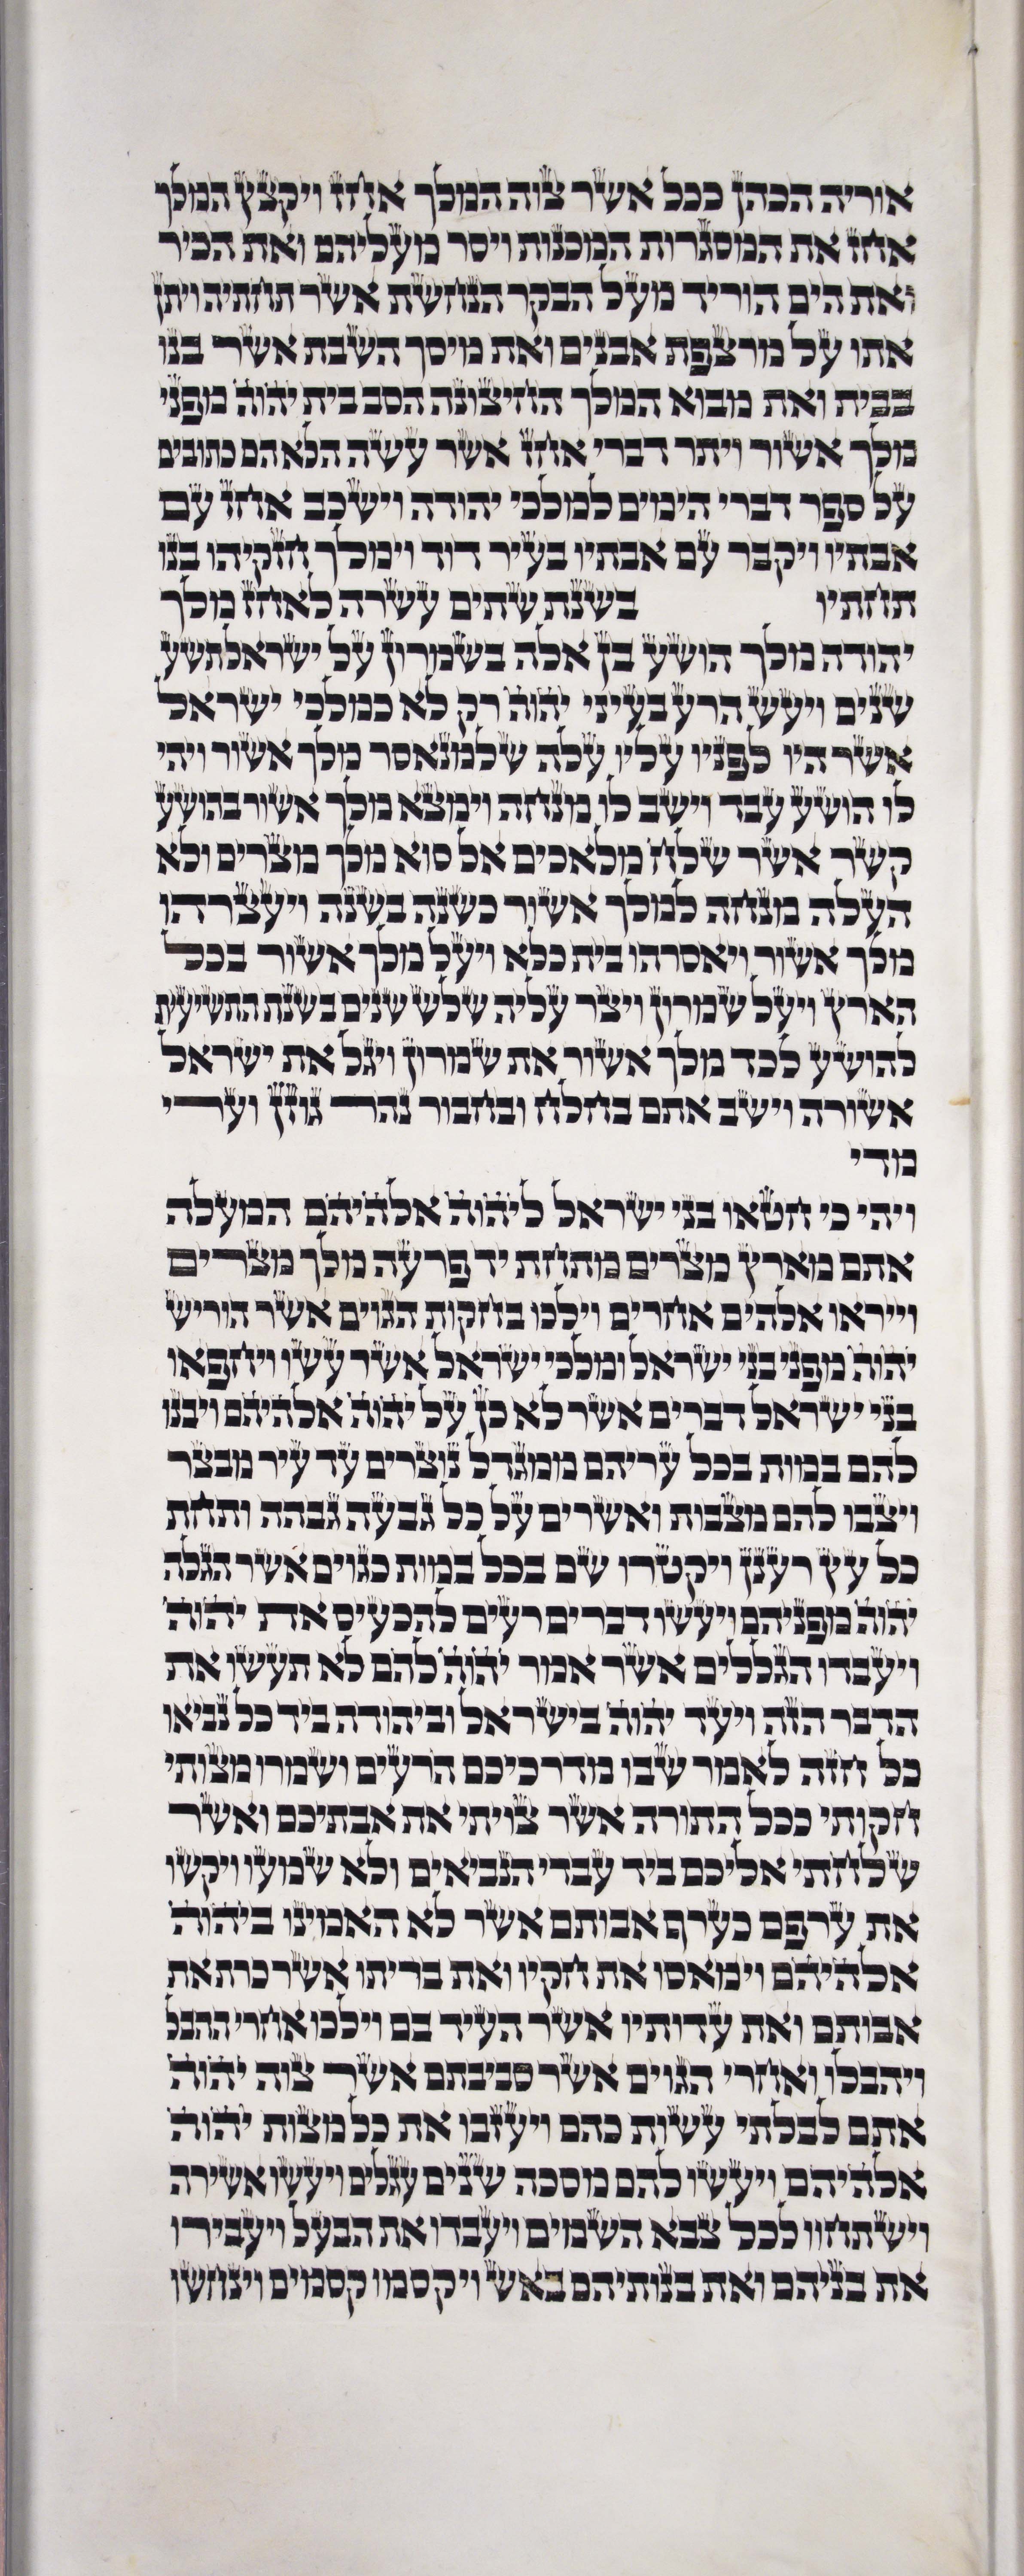 אוריה הכהן ככל אשר צוה המלך אחז ויקצץ המלך
אחז את המסגרות המכנות ויסר מעליהם ואת הכיר
ואת הים הוריד מעל הבקר הנחשת אשר תחתיה ויתן
אתו על מרצפת אבנים ואת מיסך השבת אשר בנו
בבית ואת מבוא המלך החיצונה הסב בית יהוה מפני
מלך אשור ויתר דברי אחז אשר עשה הלא הם כתובים
על ספר דברי הימים למלכי יהודה וישכב אחז עם
אבתיו ויקבר עם אבתיו בעיר דוד וימלך חזקיהו בנו
תחתיו בשנת שתים עשרה לאחז מלך
יהודה מלך הושע בן אלה בשמרון על ישראל תשע
שנים ויעש הרע בעיני יהוה רק לא כמלכי ישראל
אשר היו לפניו עליו עלה שלמנאסר מלך אשור ויהי
לו הושע עבד וישב לו מנחה וימצא מלך אשור בהושע
קשר אשר שלח מלאכים אל סוא מלך מצרים ולא
העלה מנחה למלך אשור כשנה בשנה ויעצרהו
מלך אשור ויאסרהו בית כלא ויעל מלך אשור בכל
הארץ ויעל שמרון ויצר עליה שלש שנים בשנת התשיעית
להושע לכד מלך אשור את שמרון ויגל את ישראל
אשורה וישב אתם בחלח ובחבור נהר גוזן וערי
מדי
ויהי כי חטאו בני ישראל ליהוה אלהיהם המעלה
אתם מארץ מצרים מתחת יד פרעה מלך מצרים
וייראו אלהים אחרים וילכו בחקות הגוים אשר הוריש
יהוה מפני בני ישראל ומלכי ישראל אשר עשו ויחפאו
בני ישראל דברים אשר לא כן על יהוה אלהיהם ויבנו
להם במות בכל עריהם ממגדל נוצרים עד עיר מבצר
ויצבו להם מצבות ואשרים על כל גבעה גבהה ותחת
כל עץ רענן ויקטרו שם בכל במות כגוים אשר הגלה
יהוה מפניהם ויעשו דברים רעים להכעיס את יהוה
ויעבדו הגללים אשר אמר יהוה להם לא תעשו את
הדבר הזה ויעד יהוה בישראל וביהודה ביד כל נביאו
כל חזה לאמר שבו מדרכיכם הרעים ושמרו מצותי
חקותי ככל התורה אשר צויתי את אבתיכם ואשר
שלחתי אליכם ביד עבדי הנביאים ולא שמעו ויקשו
את ערפם כערף אבותם אשר לא האמינו ביהוה
אלהיהם וימאסו את חקיו ואת בריתו אשר כרת את
אבותם ואת עדותיו אשר העיד בם וילכו אחרי ההבל
ויהבלו ואחרי הגוים אשר סביבתם אשר צוה יהוה
אתם לבלתי עשות כהם ויעזבו את כל מצות יהוה
אלהיהם ויעשו להם מסכה שנים עגלים ויעשו אשירה
וישתחוו לכל צבא השמים ויעבדו את הבעל ויעבירו
את בניהם ואת בנותיהם באש ויקסמו קסמים וינחשו